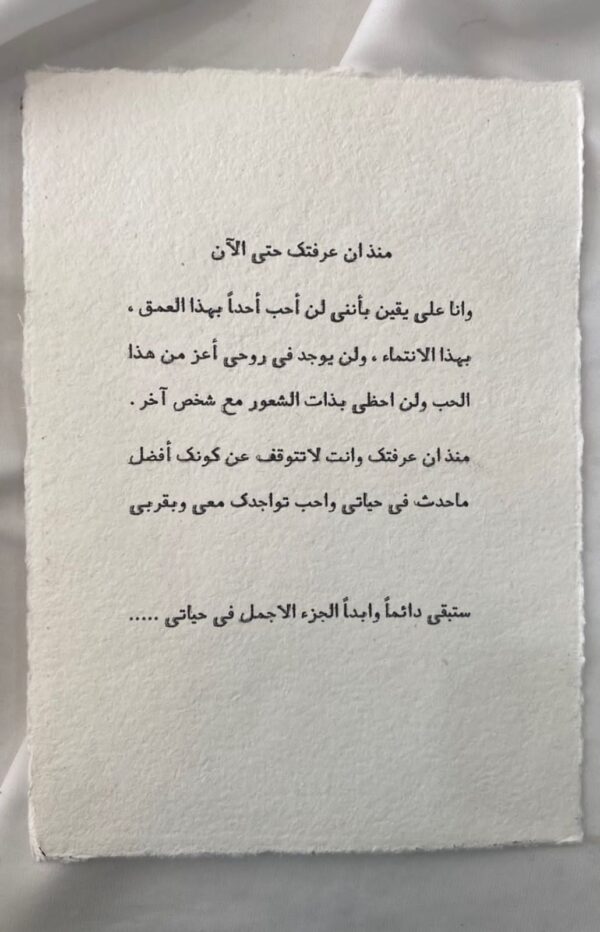 منذ ان عرفتك حتى الآن
وانا على يقين بأننى لن أحب أحداً بهذا العمق ،
بهذا الانتماء ، ولن يوجد فى روحى أعز من هذا
الحب ولن احظى بذات الشعور مع شخص آخر .
منذ ان عرفتك وانت لاتتوقف عن كونك أفضل
ماحدث فى حياتى واحب تواجدك معى وبقربى
ستبقى دائماً وابداً الجزء الاجمل فى حياتى .....